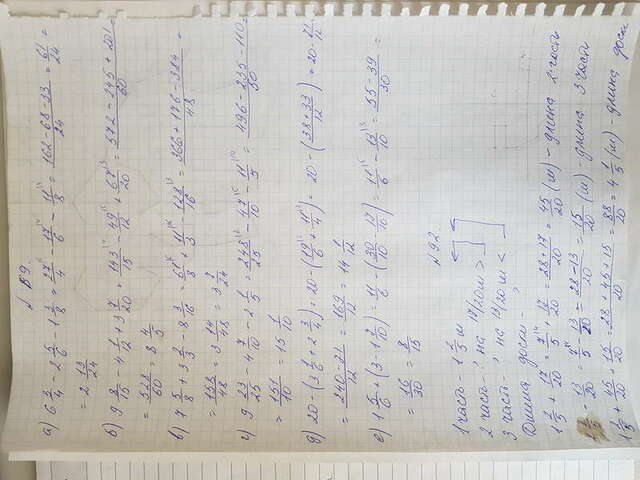 N 89.
а) 6 3/4 - 2 5/6 - 1 3/8 = 27/4 - 17/6 - 11/8 = 162 - 68 - 33/24 = 61/24 =
= 2 13/24
б) 9 8/15 - 4 1/12 + 3 7/20 = 143/15 - 49/12 + 67/20 = 572 - 245 + 201/60 =
= 528/60 = 8 4/5
в) 7 5/8 + 3 2/3 - 8 3/16 = 61/8 + 11/3 - 128/16 = 366 + 176 - 384/48 =
= 158/48 = 3 14/48 = 3 7/24
г) 9 23/25 - 4 7/10 - 2 1/5 = 248/25 - 47/10 - 11/5 = 496 - 235 - 110/50 =
= 151/10 = 15 1/10
д) 20 - (3 1/6 + 2 3/4) = 20 - (19/6 + 11/4) = 20 - (38 + 33/12) = 20 - 71/12
= 240 - 71/12 = 169/12 = 14 1/12
е) 1 5/6 + (3 - 1 7/10) = 11/6 - (30/10 - 17/10) = 11/6 - 13/10 = 55 - 39/30 =
= 16/30 = 8/15
N 92.
1 часть - 1 2/5 м
2 часть - ? на 17/20 м >
3 часть - ? на 13/20 м <
Длина доски - ?
1 2/5 + 17/20 = 7/5 + 17/20 = 28 + 17/20 = 45/20 (м) - длина 2 части
- 13/20 = 7/5 - 13/20 = 28 - 13/20 = 15/20 (м) - длина 3 части
+ 45/20 + 15/20 = 28 + 45 + 15/20 = 88/20 = 4 1/5 (м) - длина доски